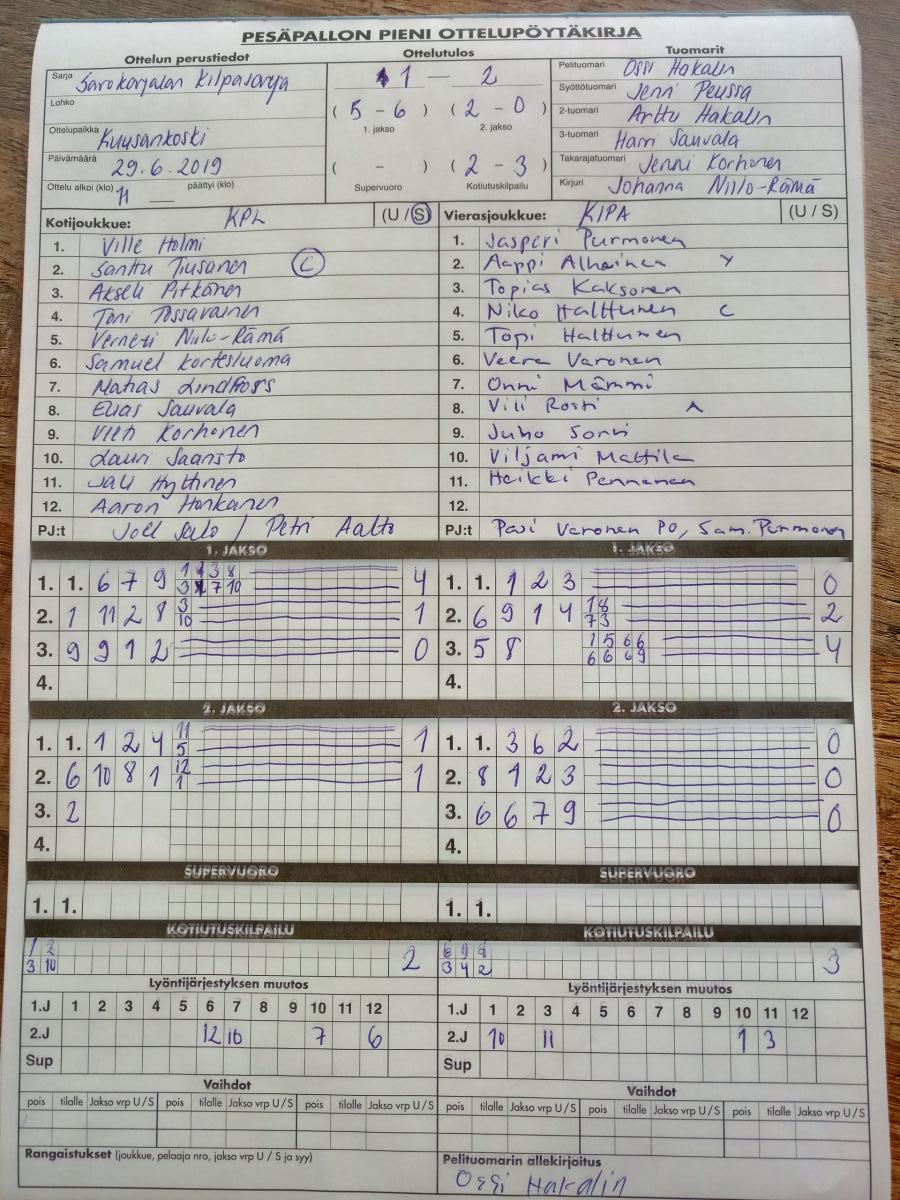 PESÄPALLON PIENI OTTELUPÖYTÄKIRJA
Ottelun perustiedot
Ottelutulos
Tuomarit
Sarja Savokarjalan Kilpasarja
Lohko
Ottelupaikka Kuusankoski
Päivämäärä 29.6.2019
Ottelu alkoi (klo) 11 päättyi (klo)
1 — 2
( 5 - 6 ) ( 2 - 0 )
1. jakso 2. jakso
( - ) ( 2 - 3 )
Supervuoro Kotiutuskilpailu
Pelituomari Ossi Hakalin
Syöttötuomari Jenni Peussa
2-tuomari Arttu Hakalin
3-tuomari Harri Sauvala
Takarajatuomari Jenni Korhonen
Kirjuri Johanna Niilo-Rämä
Kotijoukkue: KPL (U / S)
1. Ville Holmi
2. Santtu Tiusanen C
3. Akseli Pitkänen
4. Toni Tossavainen
5. Verneri Niilo-Rämä
6. Samuel Kortesluoma
7. Matias Lindfors
8. Elias Sauvala
9. Veeti Korhonen
10. Lauri Saansto
11. Jali Hyttinen
12. Aaron Honkanen
PJ:t Joel Salo / Petri Aalto
Vierasjoukkue: KIPA (U / S)
1. Jasperi Purmonen
2. Aappi Alhainen Y
3. Topias Kaksonen
4. Niko Halttunen C
5. Topi Halttunen
6. Veera Varonen
7. Onni Mämmi
8. Vili Rosti ^
9. Juho Sorvi
10. Viljami Mattila
11. Heikki Pennanen
12.
PJ:t Pasi Varonen PO, Sam. Purmonen
1. JAKSO
1. 1. 6 7 9 1 3 8 4
3 7 10
2. 1 11 2 8 3 1
10
3. 9 9 1 2 0
4.
1. JAKSO
1. 1. 1 2 3 0
2. 6 9 1 4 1 8 2
7 3
3. 5 8 1 5 6 6 4
6 6 6 9
4.
2. JAKSO
1. 1. 1 2 4 11 1
5
2. 6 10 8 1 12 1
1
3. 2
4.
2. JAKSO
1. 1. 3 6 2 0
2. 8 1 2 3 0
3. 6 6 7 9 0
4.
SUPERVUORO
1. 1.
SUPERVUORO
1. 1.
KOTIUTUSKILPAILU
1 2 2
3 10
KOTIUTUSKILPAILU
6 9 8 3
3 4 2
Lyöntijärjestyksen muutos
1.J 1 2 3 4 5 6 7 8 9 10 11 12
2.J 12 10 7 6
Sup
Lyöntijärjestyksen muutos
1.J 1 2 3 4 5 6 7 8 9 10 11 12
2.J 10 11 1 3
Sup
Vaihdot
pois tilalle Jakso vrp U / S pois tilalle Jakso vrp U / S pois tilalle Jakso vrp U / S
Vaihdot
pois tilalle Jakso vrp U / S pois tilalle Jakso vrp U / S pois tilalle Jakso vrp U / S
Rangaistukset (joukkue, pelaaja nro, jakso vrp U / S ja syy)
Pelituomarin allekirjoitus
Ossi Hakalin